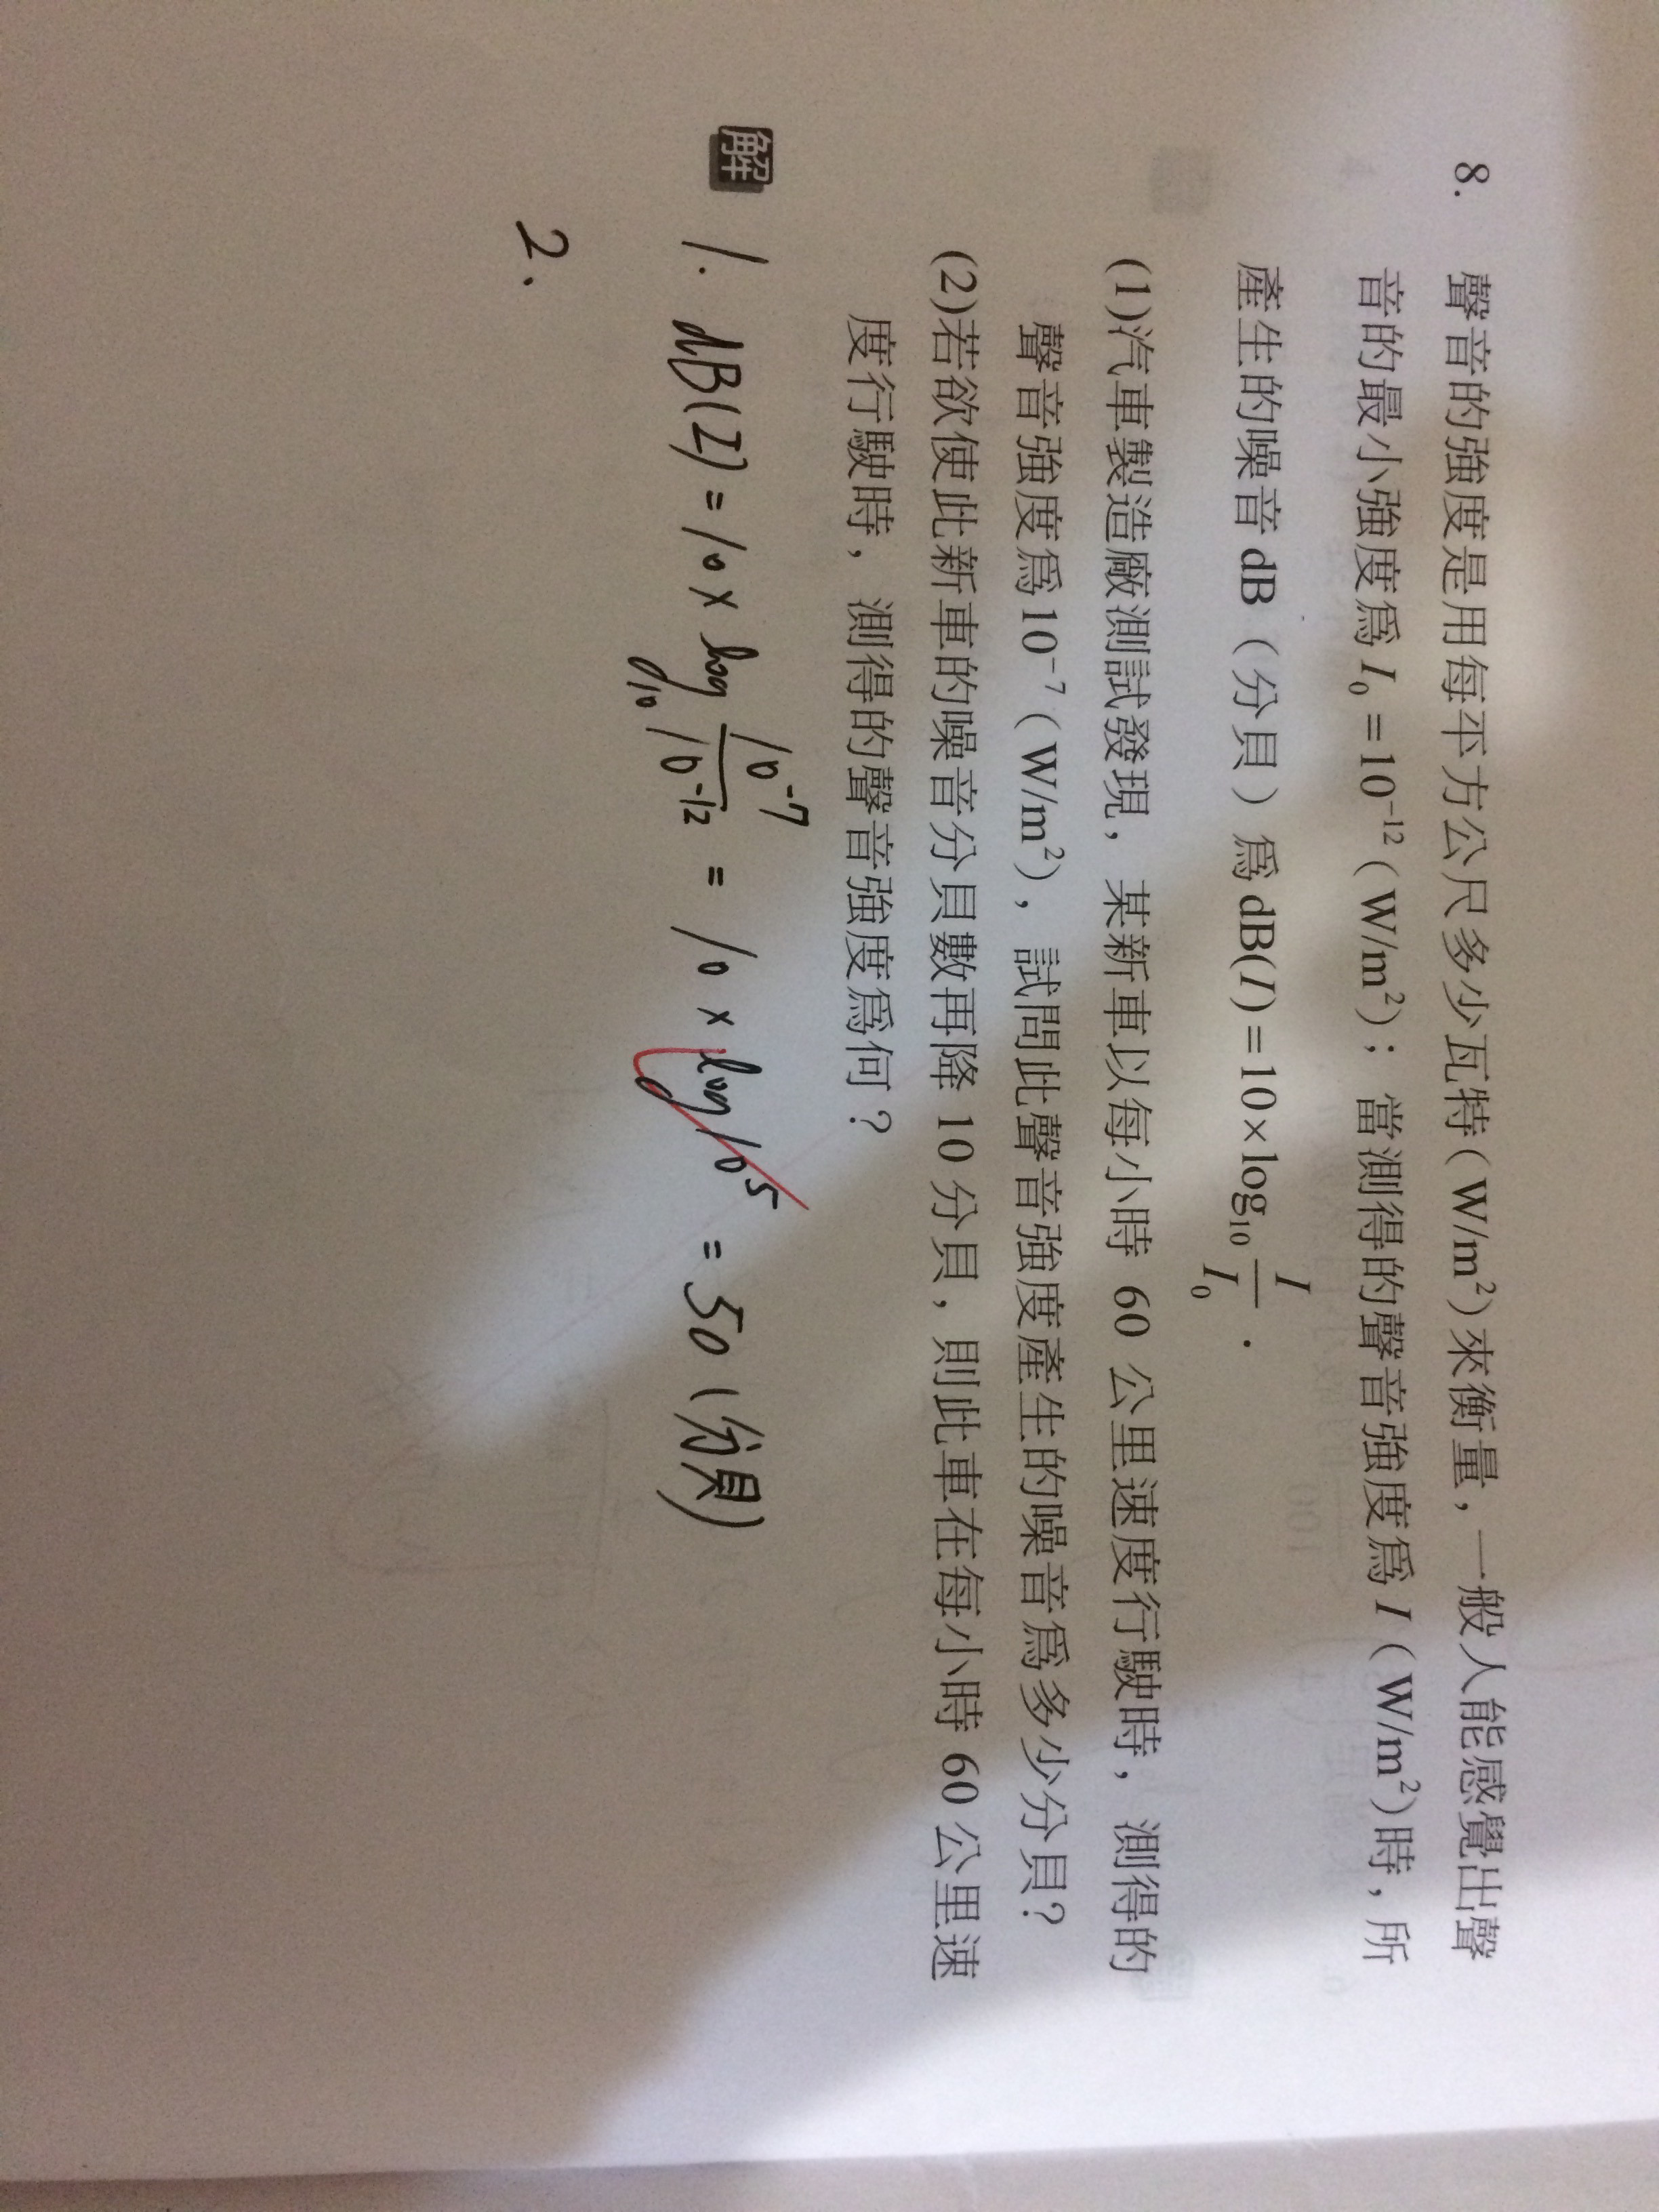 8. 聲音的強度是用每平方公尺多少瓦特(W/m²)來衡量，一般人能感覺出聲
音的最小強度爲 I₀ =10⁻¹²(W/m²)；當測得的聲音強度爲 I (W/m²)時，所
產生的噪音 dB（分貝）爲 dB(I) = 10×log₁₀ I/I₀．
(1)汽車製造廠測試發現，某新車以每小時 60 公里速度行駛時，測得的
聲音強度爲 10⁻⁷(W/m²)，試問此聲音強度產生的噪音爲多少分貝？
(2)若欲使此新車的噪音分貝數再降 10 分貝，則此車在每小時 60 公里速
度行駛時，測得的聲音強度爲何？
解 1. dB(I) = 10 × log₁₀ 10⁻⁷/10⁻¹² = 10 × log10⁵ = 50 (分貝)
2、